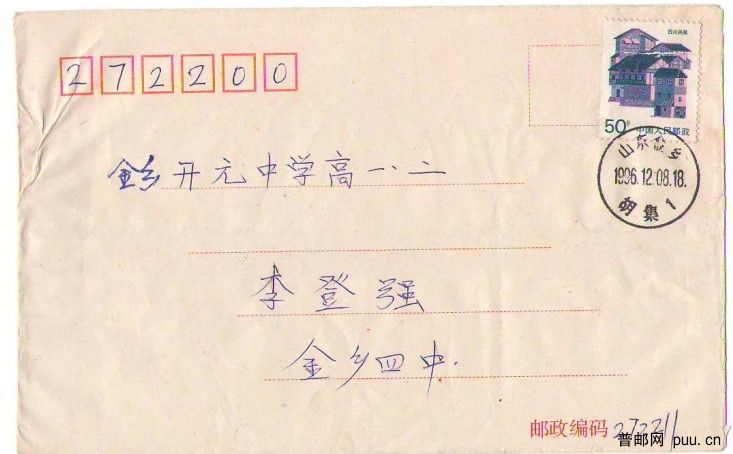 272200
四川民居
50分
中国人民邮政
山东金乡
1996.12.08.18.
胡集1
金乡开元中学高一·二
李登强
金乡四中.
邮政编码272211
普邮网 puu.cn